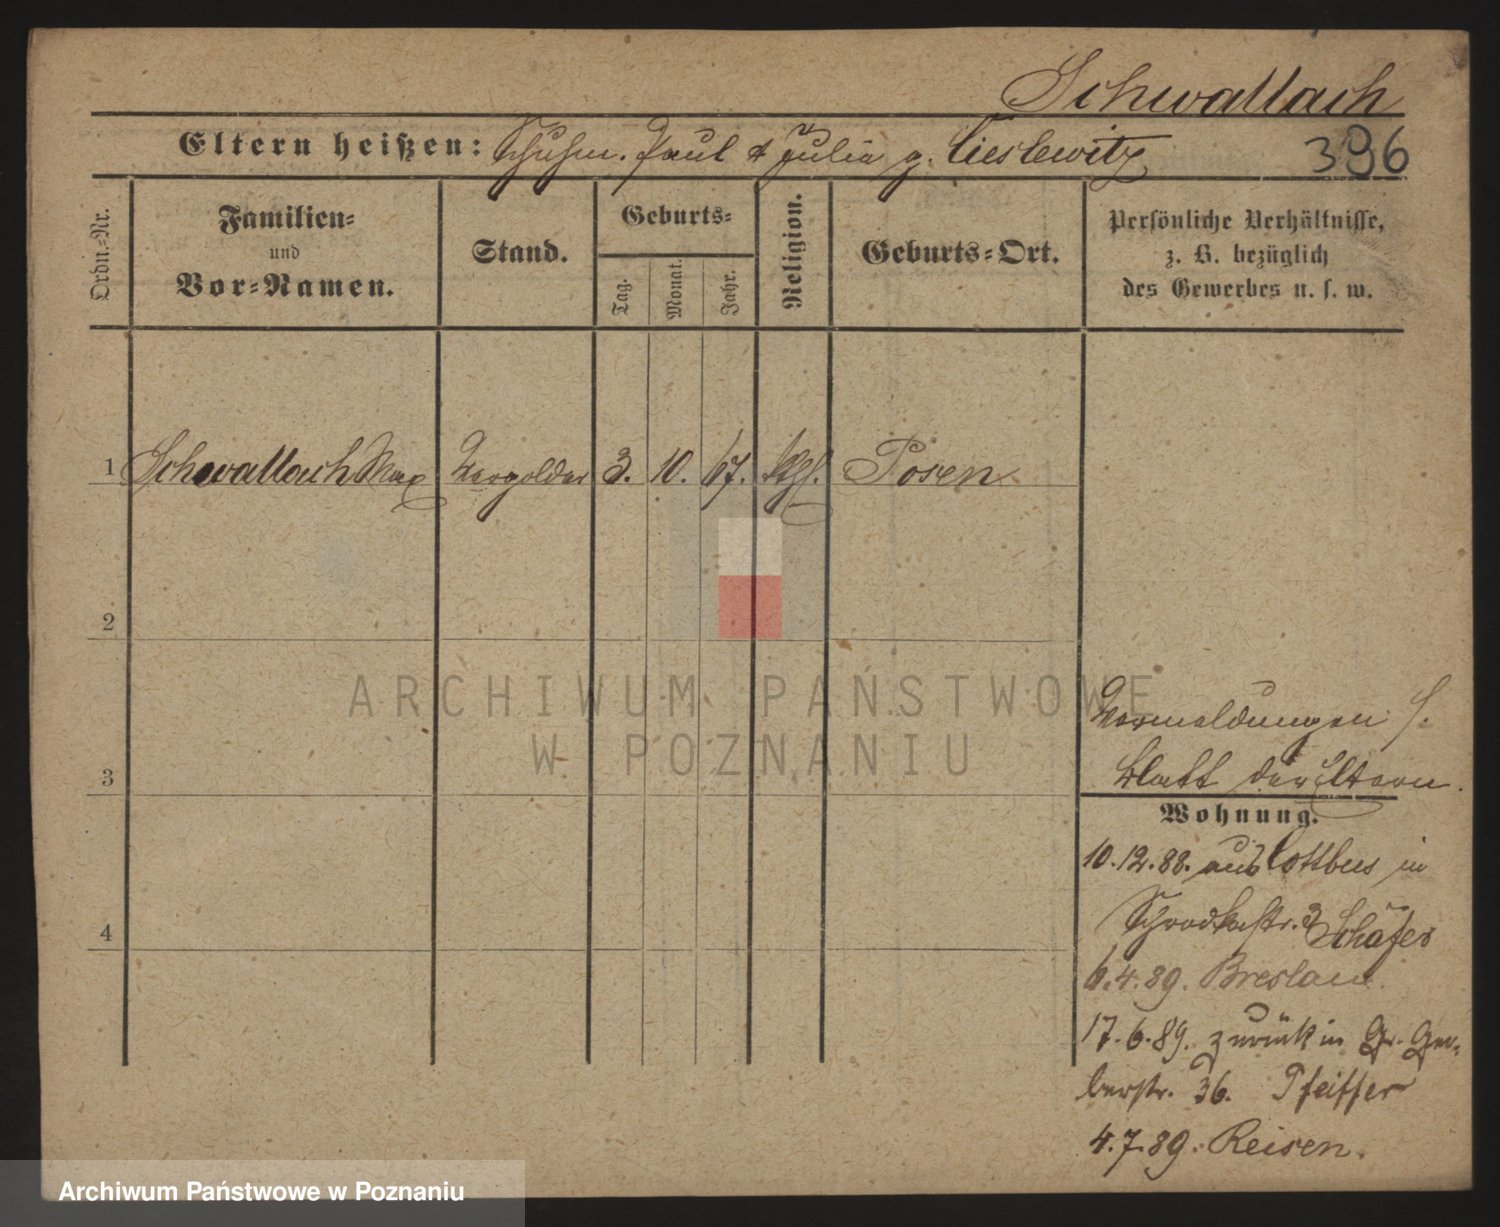 Schwallach
Eltern heißen: Schuhm. Paul & Julia g. Cieslewitz
396
Ordn.-Nr.
Familien-
und
Vor-Namen.
Stand.
Geburts-
Tag.
Monat.
Jahr.
Religion.
Geburts-Ort.
Persönliche Verhältnisse,
z. B. bezüglich
des Gewerbes u. s. w.
1 Schwallach Max Vergolder 3. 10. 67. Posen
2
3
4
ARCHIWUM PAŃSTWOWE
W POZNANIU
Vormeldungen s.
Blatt der Eltern.
Wohnung.
10.12.88. aus Cottbus in
Schrodkastr. 3 Schäfer
6.4.89. Breslau.
17.6.89. zurück in Gr. Ger-
berstr. 36. Pfeiffer
4.7.89. Reisen.
Archiwum Państwowe w Poznaniu